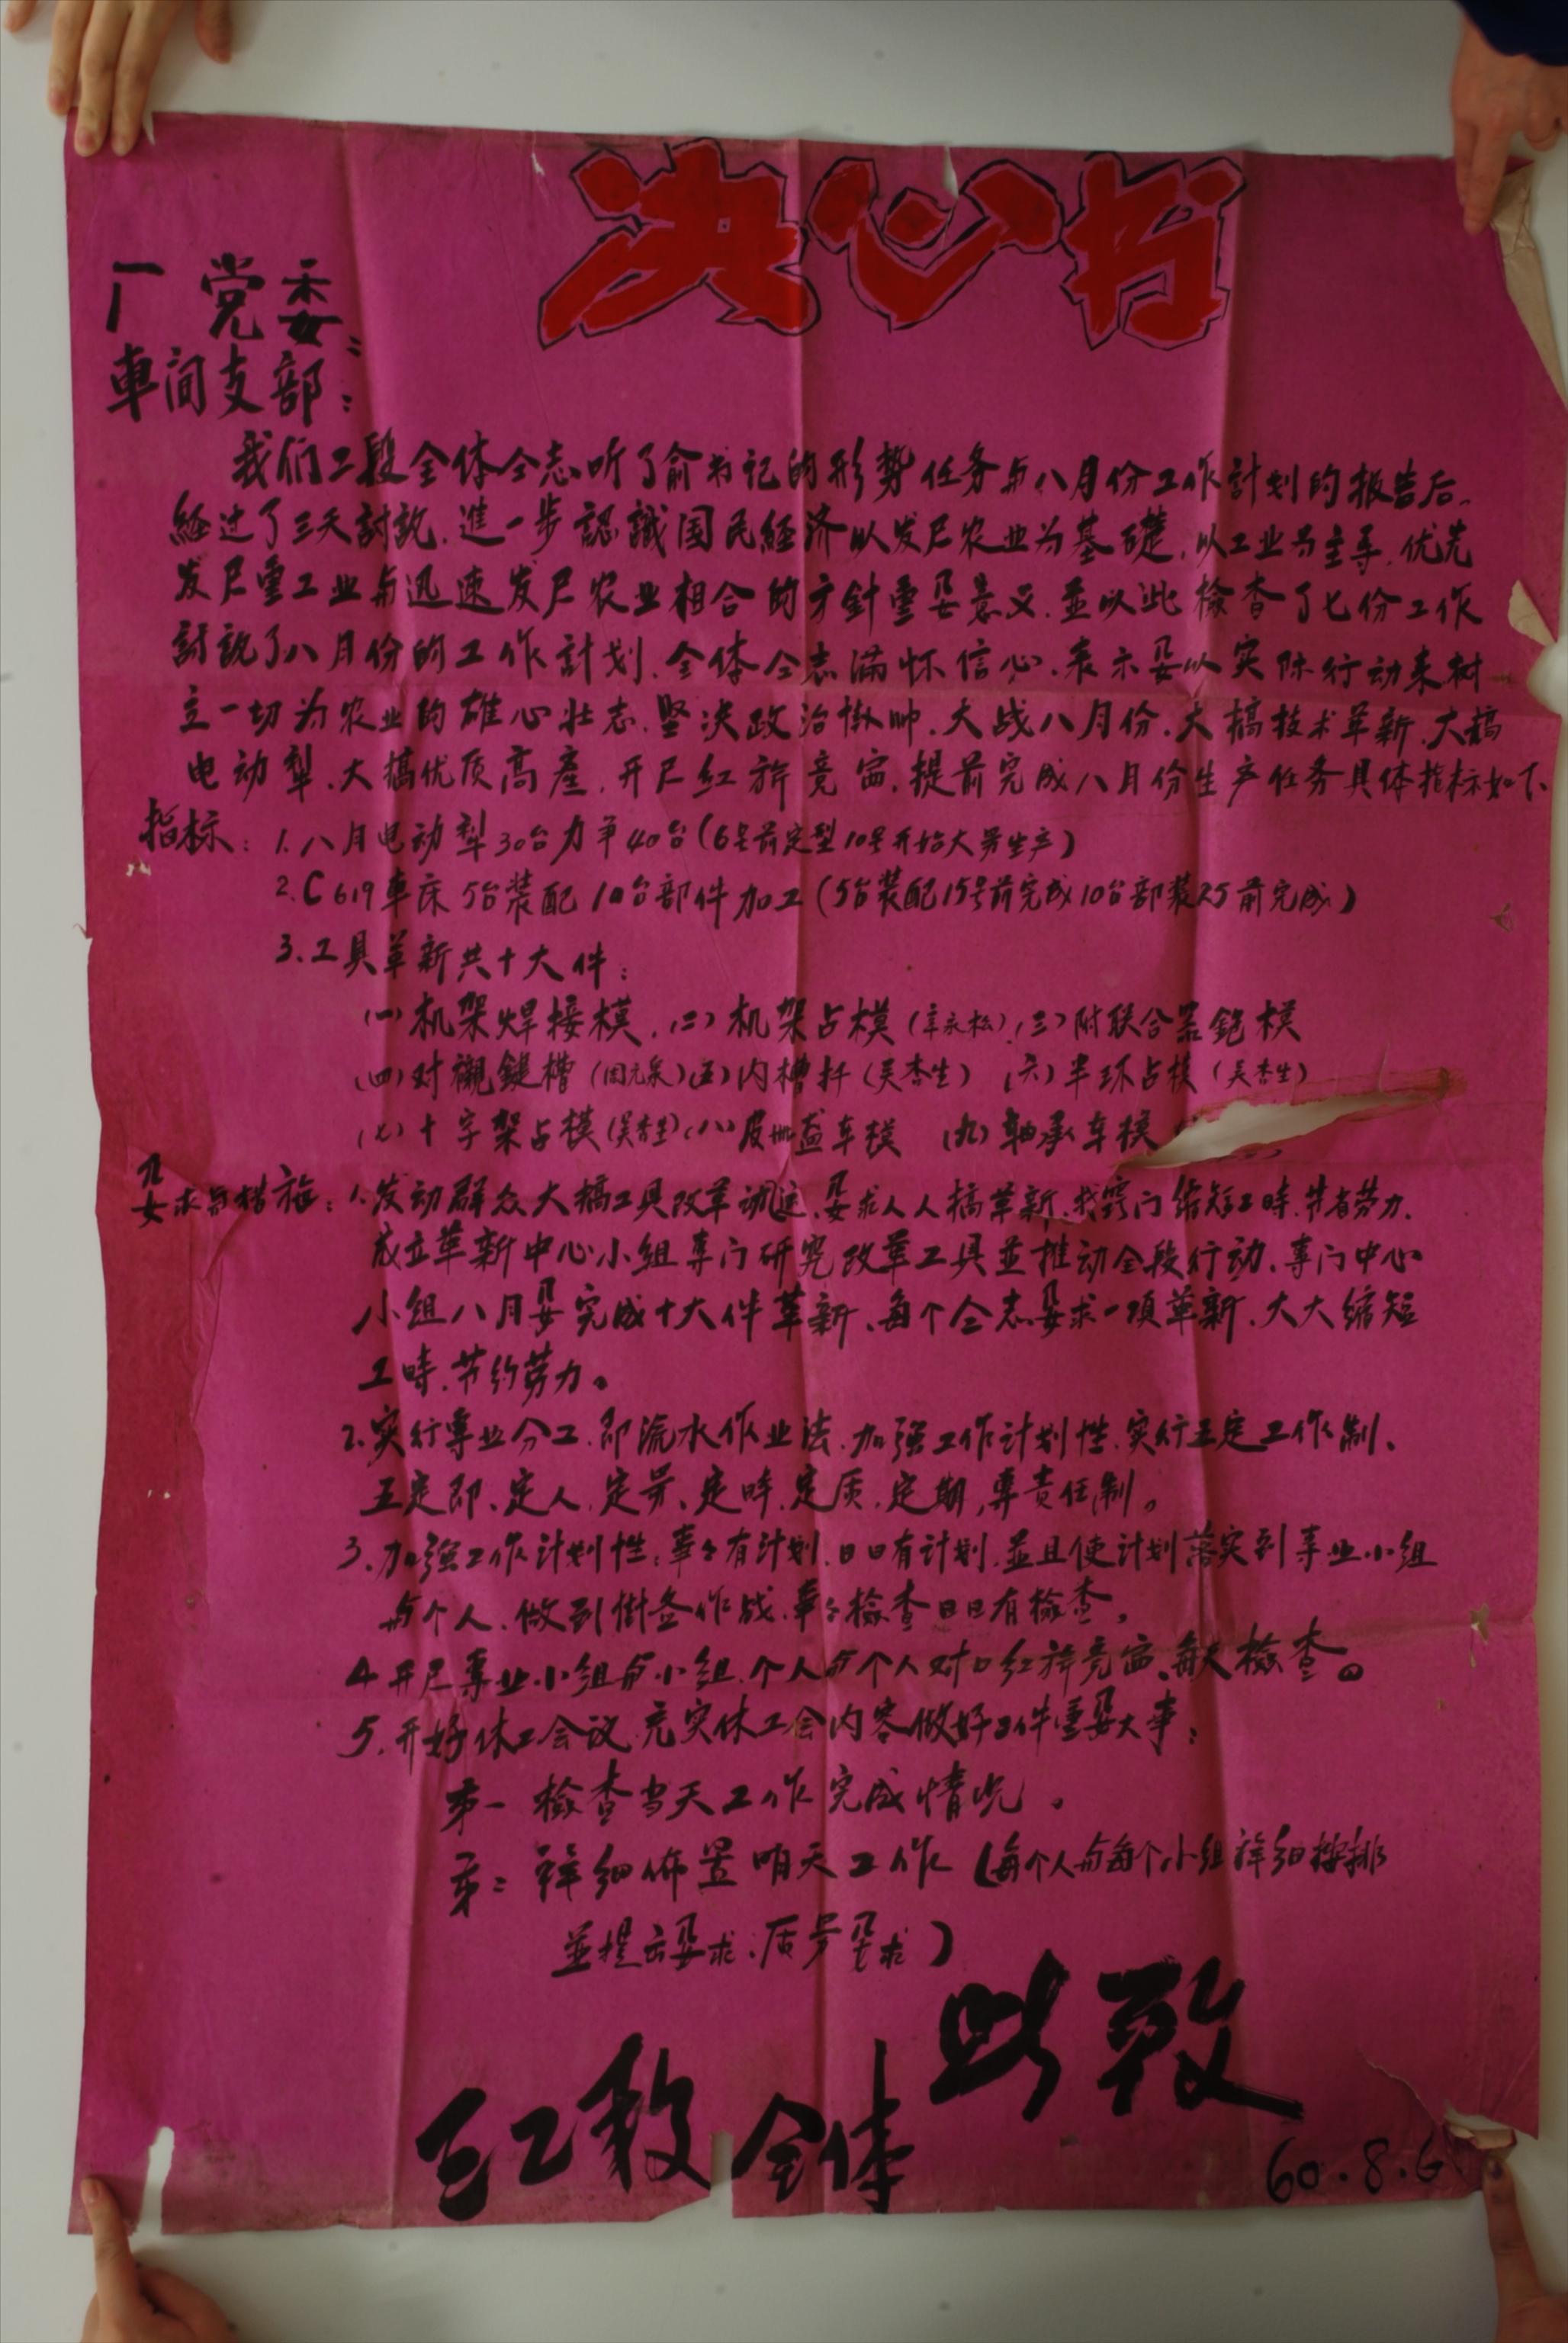 决心书
厂党委:
車间支部:
我们工段全体仝志听了俞书记的形势任务与八月份工作計划的报告后、
經过了三天討說、進一步認識国民經济以发尸农业为基礎、以工业为主导、优先
发尸重工业与迅速发尸农业相合的方針重要意义、並以此檢查了七份工作
討說了八月份的工作計划、全体仝志满怀信心、表示要以实际行动来树
立一切为农业的雄心壮志、坚决政治掛帅、大战八月份、大搞技术革新、大搞
电动犁、大搞优质高產、开尸红旂竞宙、提前完成八月份生产任务具体指标如下、
指标: 1.八月电动犁30台力争40台(6号前定型10号开始大号生产)
2.C619車床5台装配10台部件加工(5台装配15号前完成10台部装25前完成)
3.工具革新共十大件:
(一)机架焊接模、(二)机架占模(章永松)、(三)附联合器鉋模
(四)对襯鍵槽(周元泉)(五)内槽扦(吴杏生) (六)半环占模(吴杏生)
(七)十字架占模(吴杏生)(八)皮 盖车模 (九)軸承车模
要求与措施: 1.发动群众大搞工具改革 、要求人人搞革新、找窍门缩短工時、节省劳力、
成立革新中心小组專门研究改革工具並推动全段行动、專门中心
小组八月要完成十大件革新、每个仝志要求一項革新、大大缩短
工時、节约劳力。
2.实行專业分工、即流水作业法、加强工作计划性、实行五定工作制、
五定即、定人、定号、定時、定质、定期,專责任制。
3.加强工作计划性:事々有计划、日日有计划、並且使计划落实到專业小组
与个人、做到 作战、事々檢查日日有檢查,
4 开尸專业小组与小组、个人与个人对口红旂竞宙、每天檢查。
5.开好休工会议、充实休工会内容做好2件重要大事:
第一 檢查当天工作完成情况。
第二 詳细佈置明天工作(每个人与每个小组詳细按排
並提出要求、质号要求)
此致
三工段全体
60.8.6